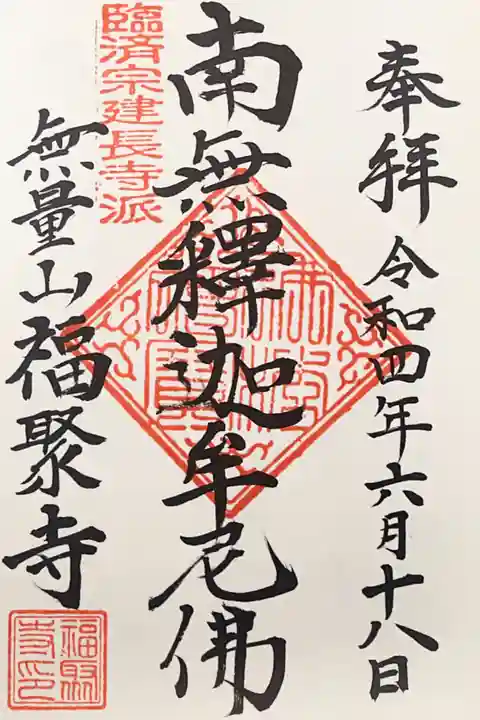 奉拝 令和四年六月十八日
南無釋迦牟尼佛
臨済宗建長寺派
無量山福聚寺
福聚寺印